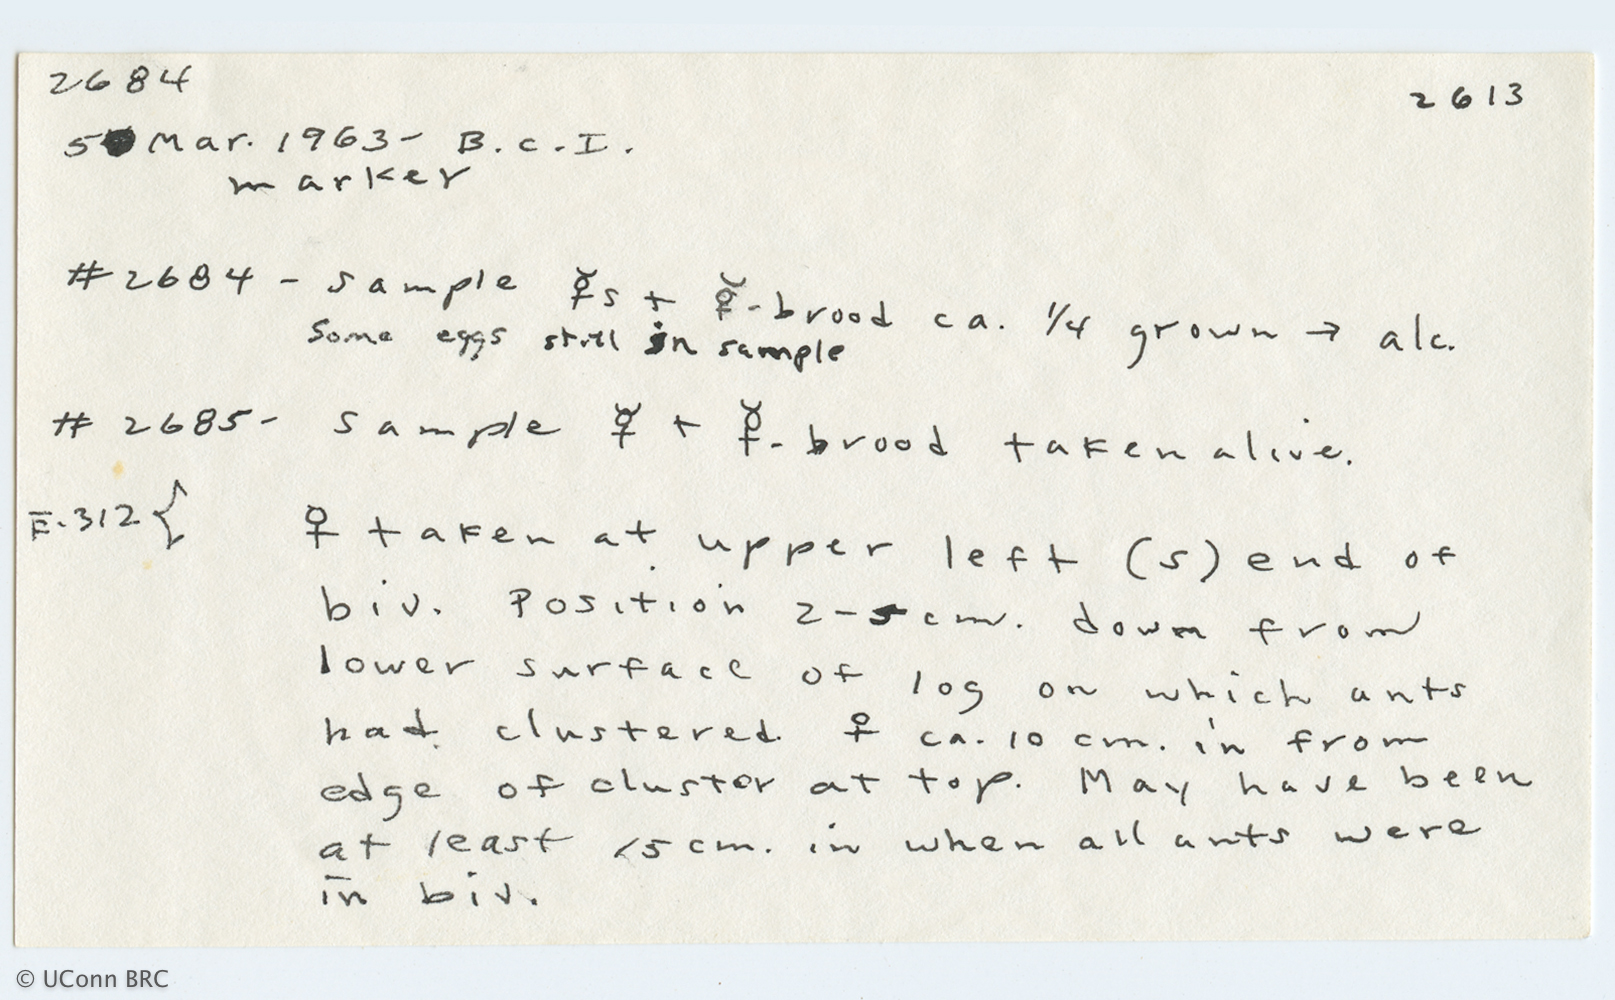 2684
2613
5 Mar. 1963 - B.C.I.
marker
#2684 - sample ☿s + ☿-brood ca. 1/4 grown → alc.
Some eggs still in sample
# 2685 - sample ☿ + ☿-brood taken alive.
E-312 {
♀ taken at upper left (S) end of
biv. Position 2-5 cm. down from
lower surface of log on which ants
had clustered. ♀ ca. 10 cm. in from
edge of cluster at top. May have been
at least 15 cm. in when all ants were
in biv.
© UConn BRC